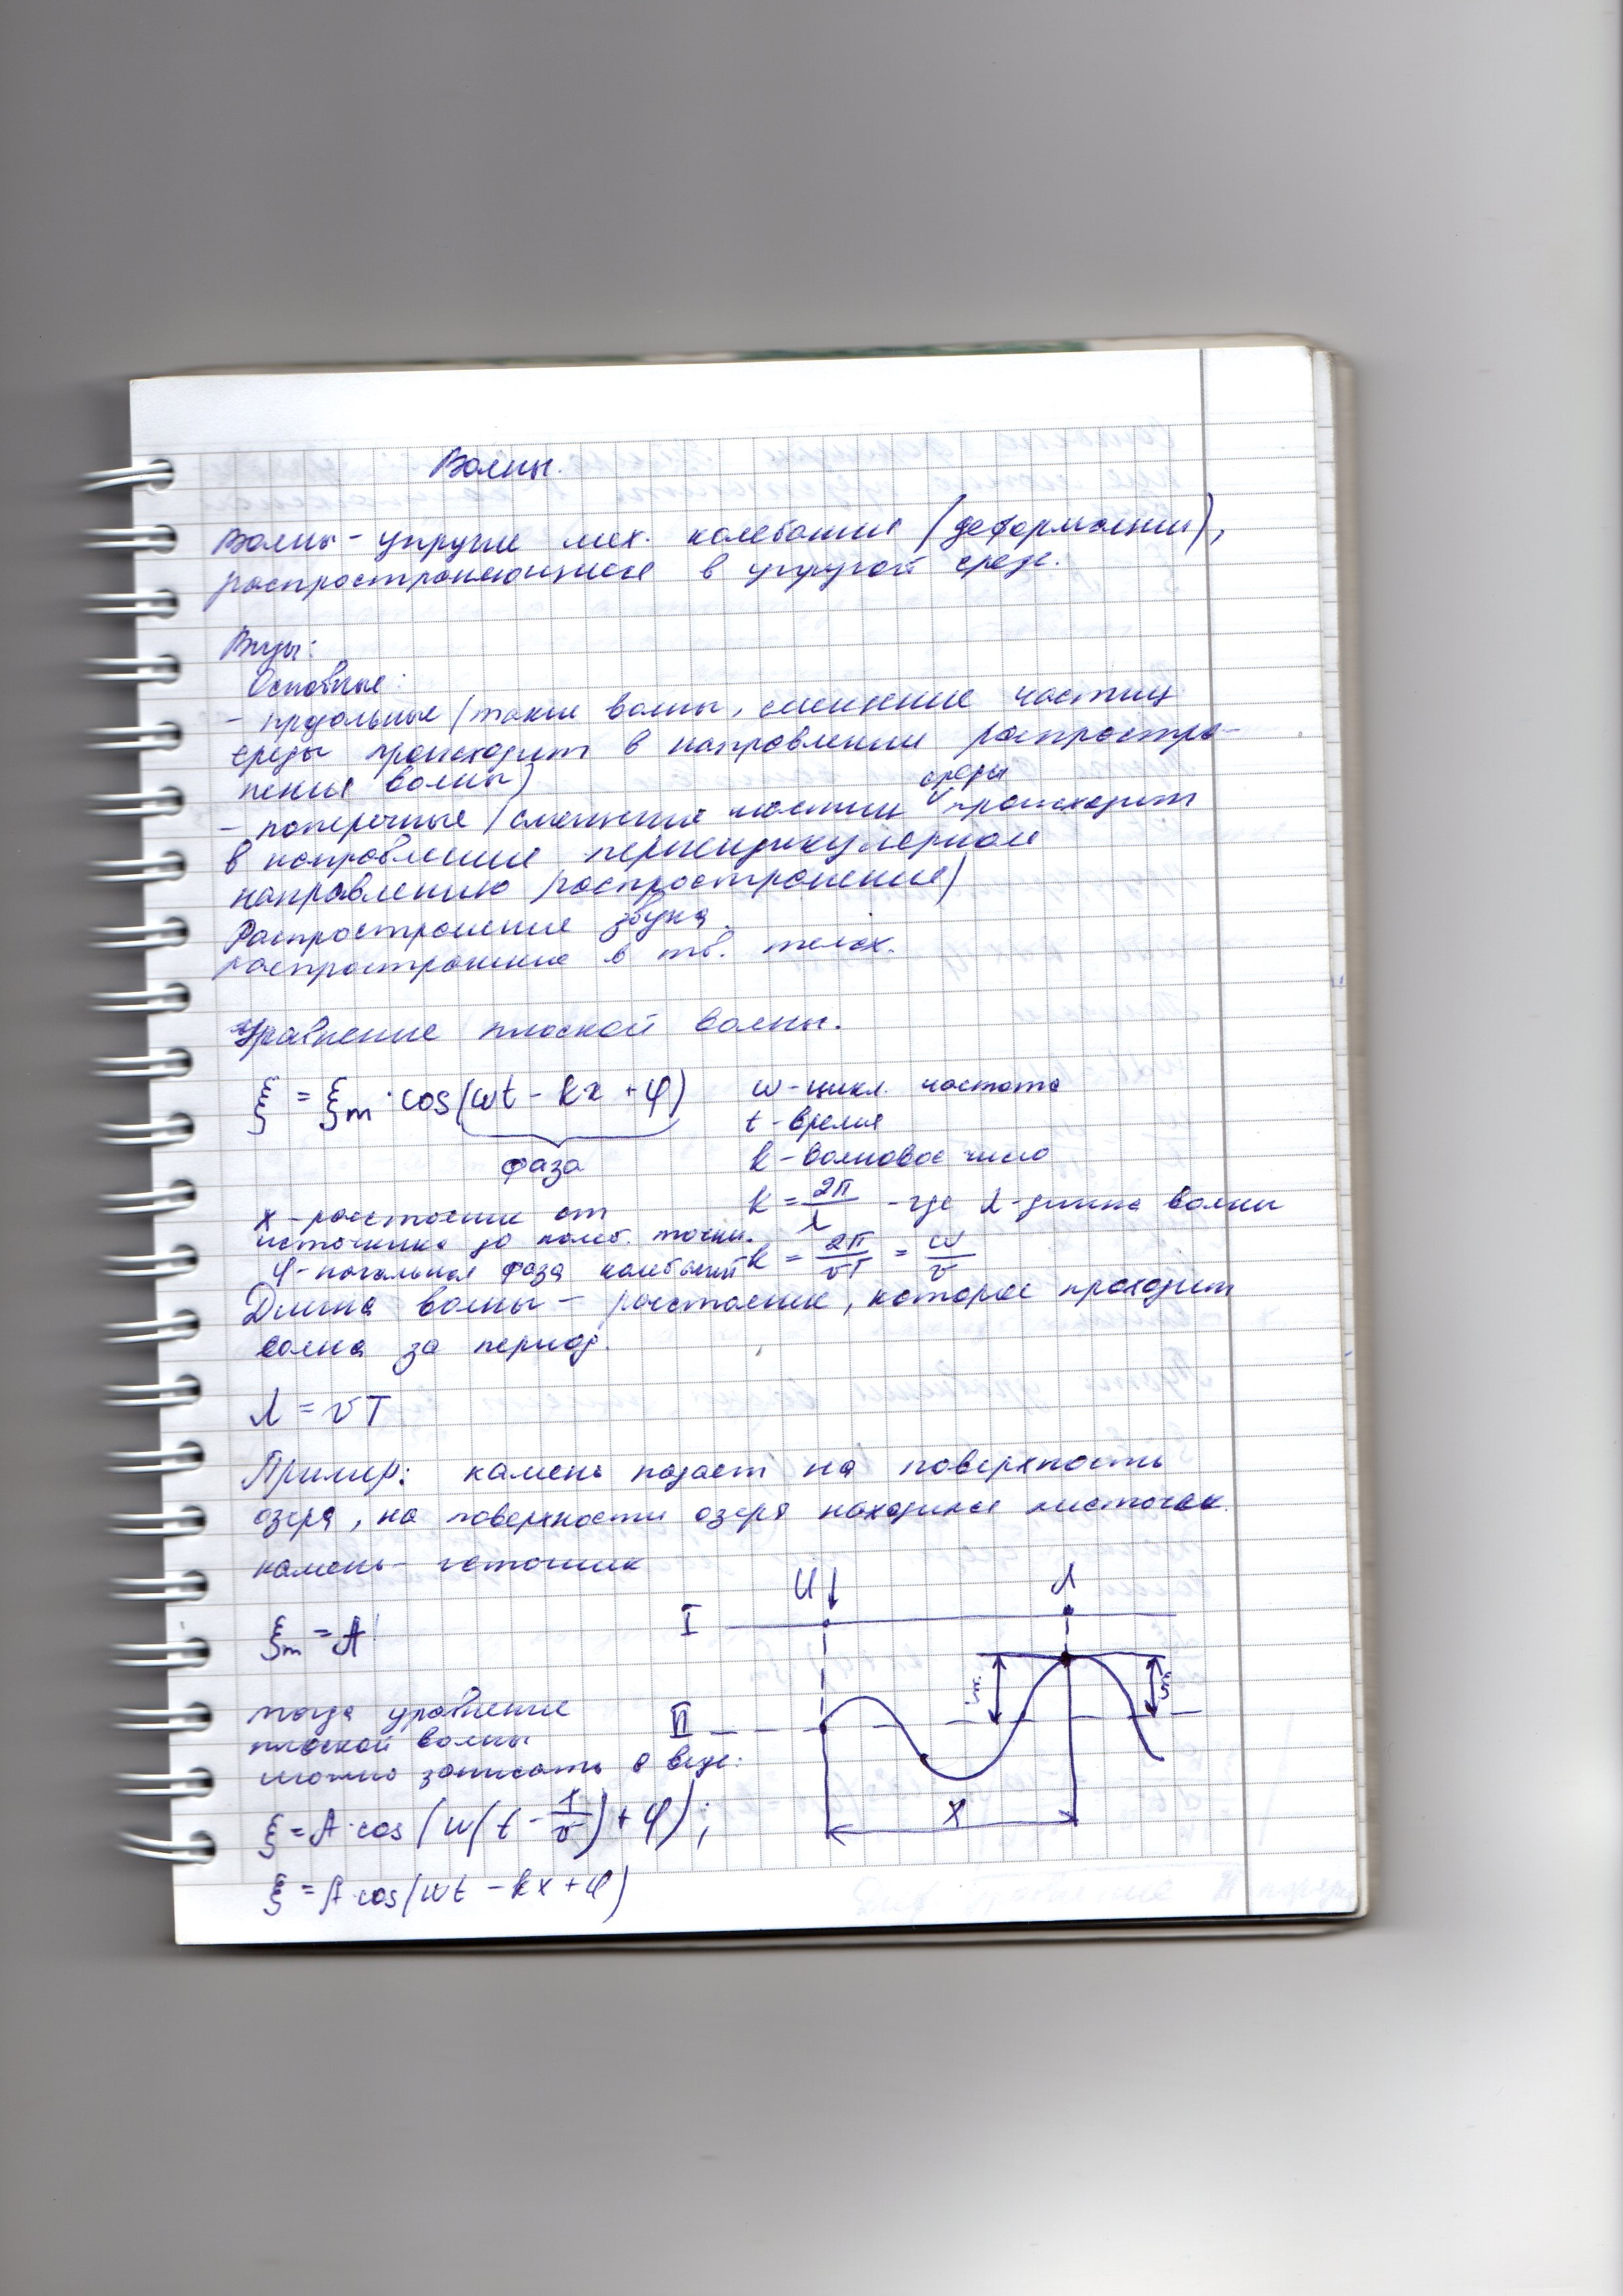 Волны.
Волны - упругие мех. колебания (деформации),
распространяющиеся в упругой среде.
Виды:
Основные:
- продольные (такие волны, смещение частиц
среды происходит в направлении распростра-
нения волны)
среды
- поперечные (смещение частиц V происходит
в направлении перпендикулярном
направлению распространения)
Распространение звука.
распространение в тв. телах.
Уравнение плоской волны.
ξ = ξm · cos(ωt - kx + φ)
фаза
ω - цикл. частота
t - время
k - волновое число
k = 2π/λ - где λ - длина волны
x - расстояние от
источника до колеб. точки.
k = 2π/vT = ω/v
φ - начальная фаза колебаний
Длина волны - расстояние, которое проходит
волна за период.
λ = vT
Пример: камень падает на поверхность
озера, на поверхности озера находится листочек.
камень - источник
И
Л
I
ξm = A
ξ
ξ
II
тогда уравнение
плоской волны
можно записать в виде:
X
ξ = A · cos(ω(t - x/v) + φ);
ξ = A · cos(ωt - kx + φ)